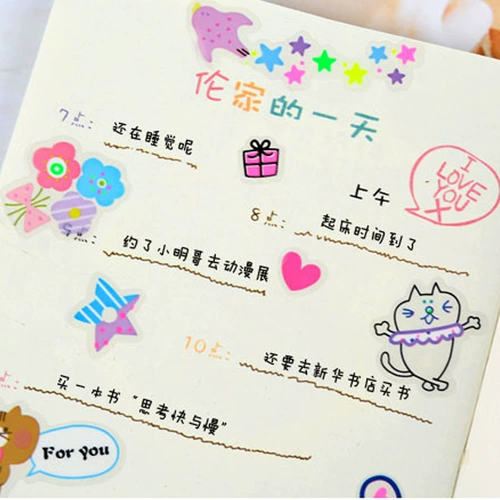 伦家的一天
7点: 还在睡觉呢
上午
I
LOVE
YOU
X
8点: 起床时间到了
9点: 约了小明哥去动漫展
10点: 还要去新华书店买书
点: 买一本书“思考快与慢”
For you